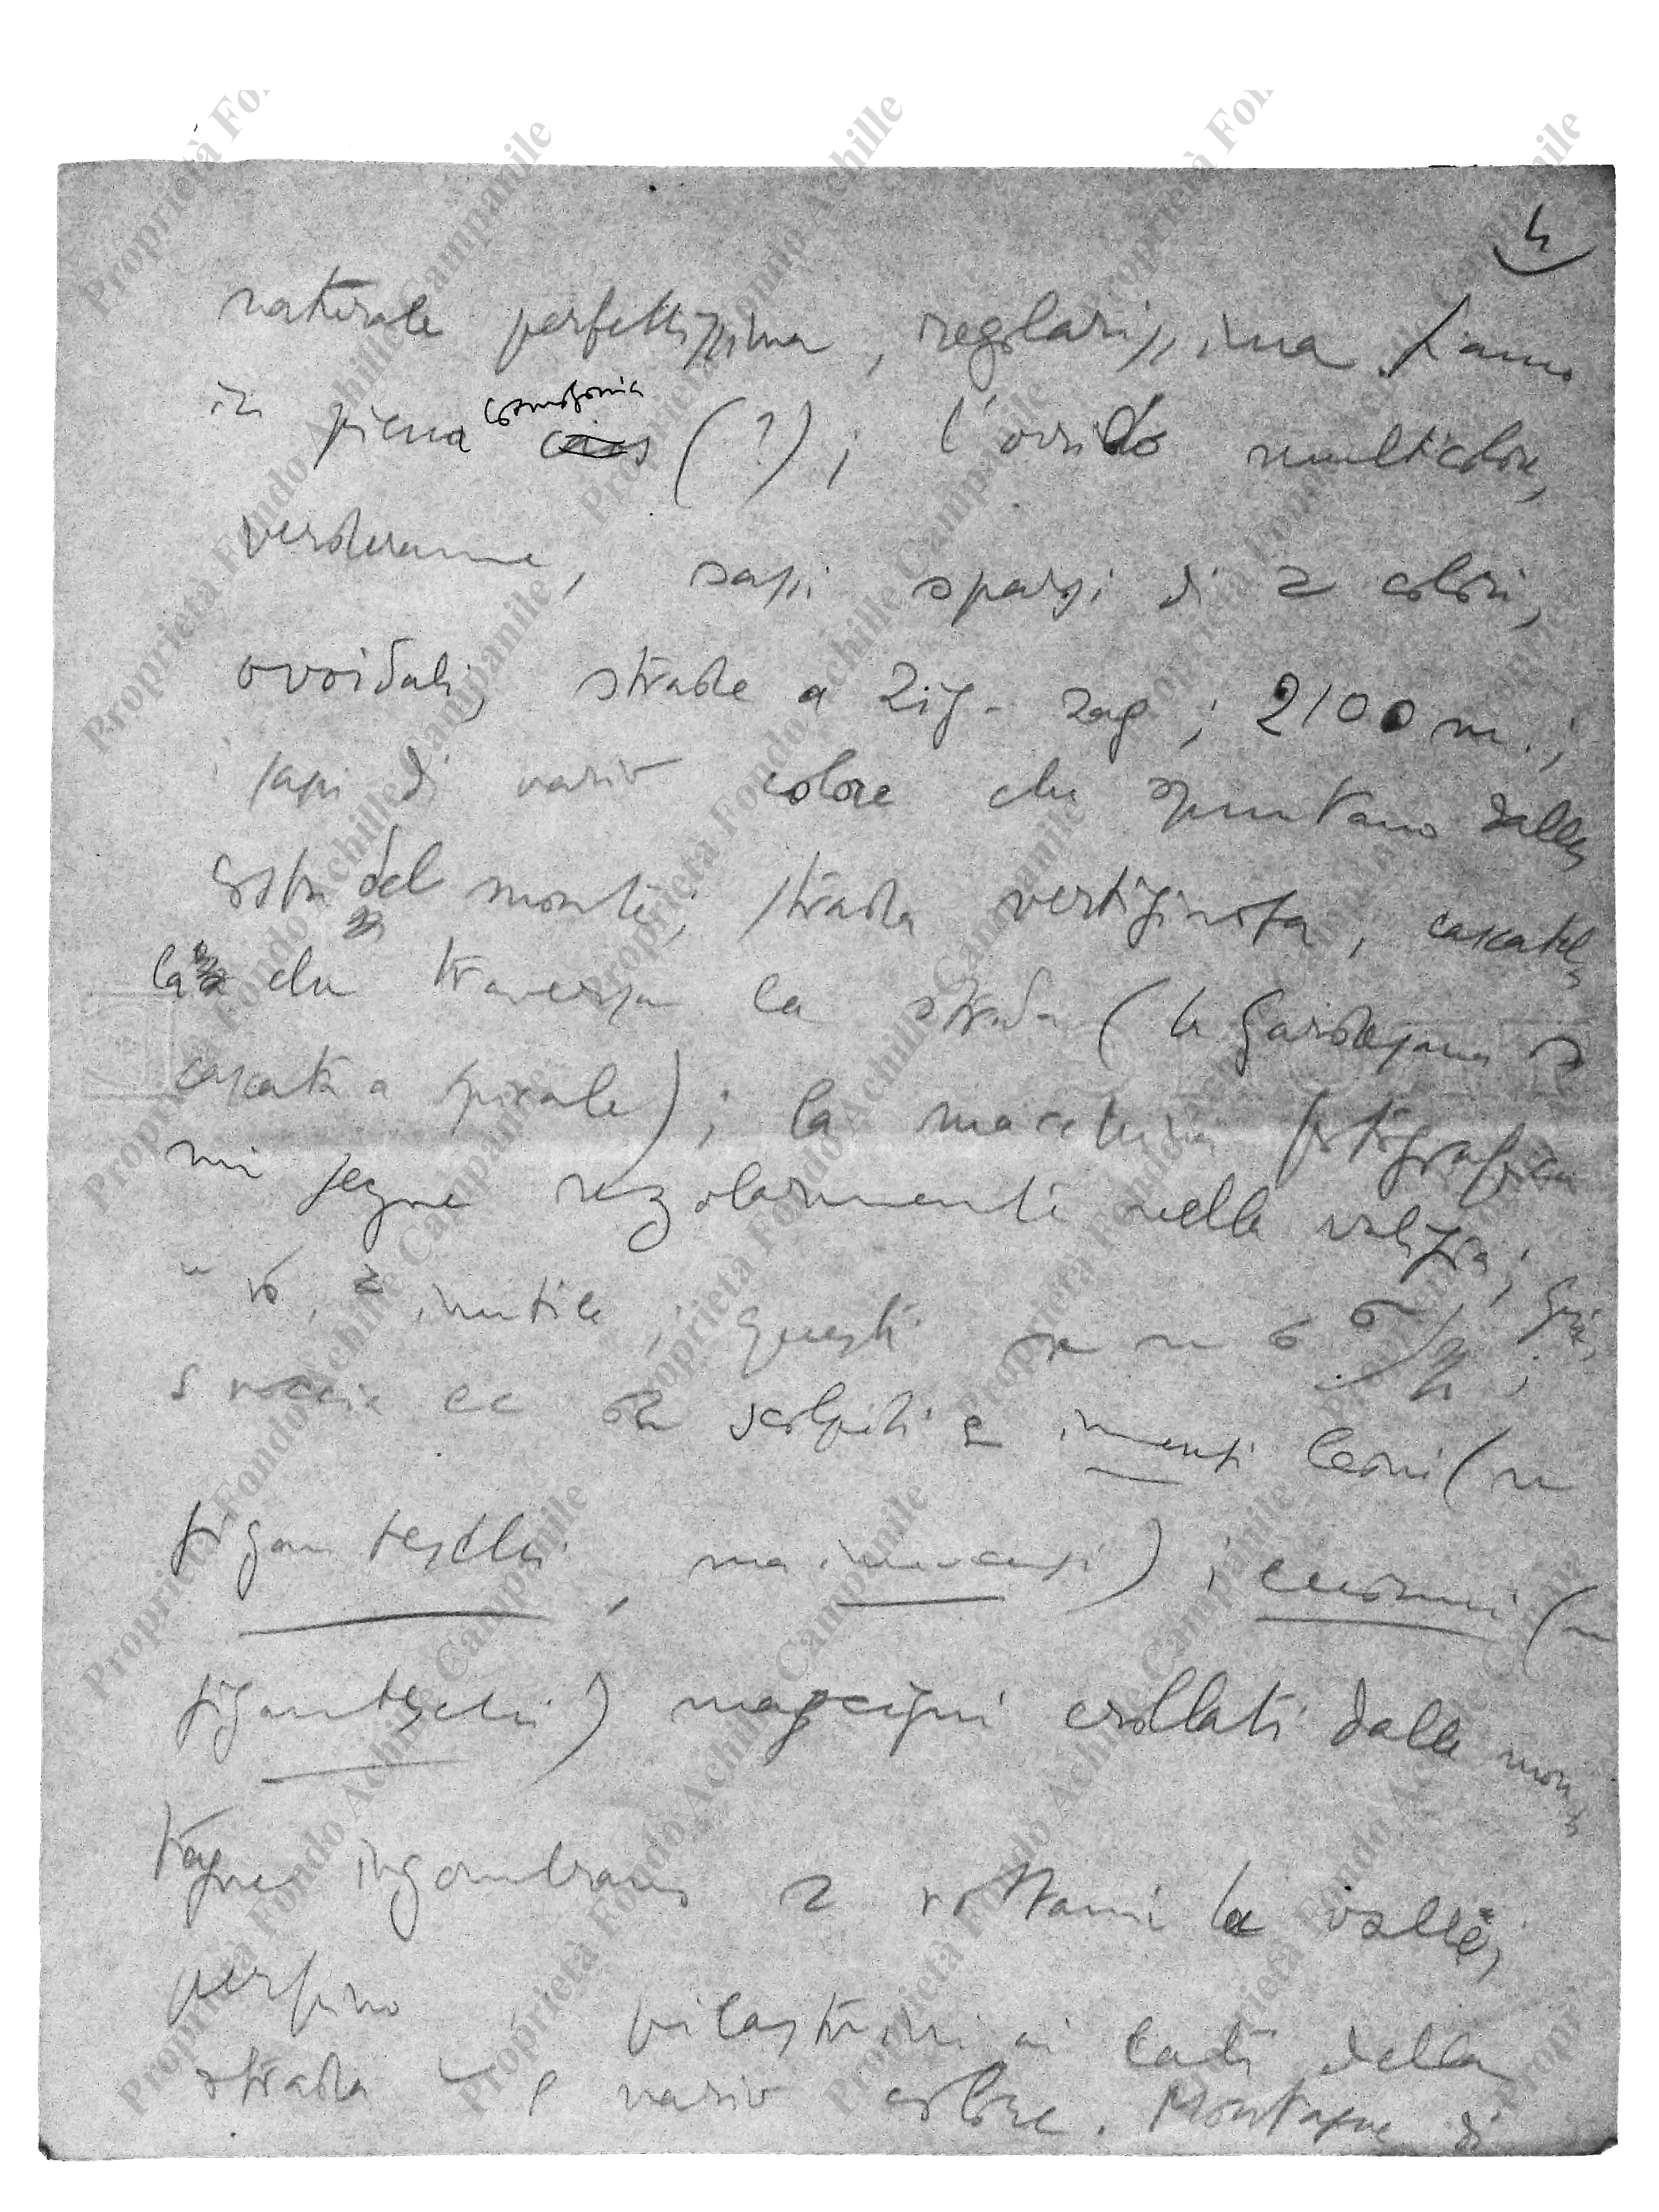 4
naturale perfettissima, regolarissima siamo
in piena cosmogonia caos (?); l'orrido multicolore,
verderame, sassi sparsi di 2 colori,
ovoidali, strade a zig-zag; 2100 m.;
sassi di vario colore che spuntano dalla
costa del monte; strada vertiginosa, cascatel
la che traversa la strada (la Gardesana
cascata a spirale); la macchina fotografica
mi segue regolarmente nella valigia;
inutile; questi
roccie scolpiti immensi leoni (
giganteschi, ma immensi); enormi (
giganteschi) macigni crollati dalle mon
tagne ingombrano rottami la valle,
perfino pilastrini ai lati della
strada vario colore. Montagne di